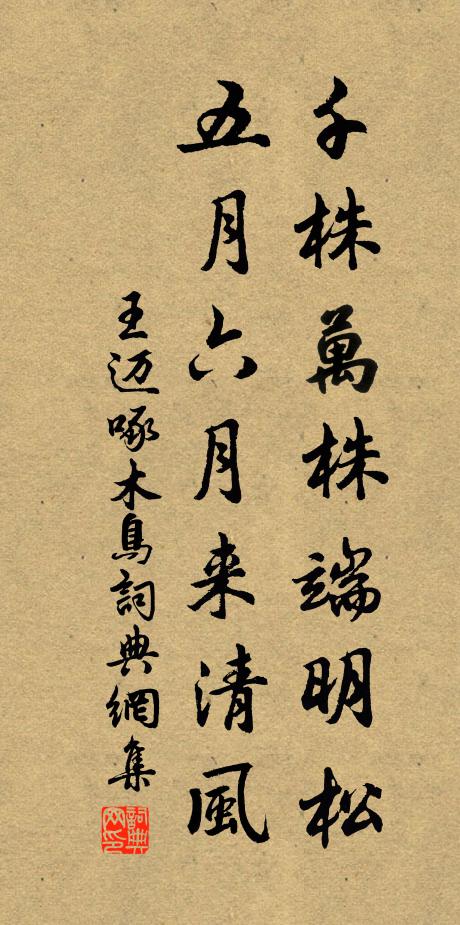 千株萬株端明松
五月六月来清風
王迈啄木鳥詞典網集
詞典网印